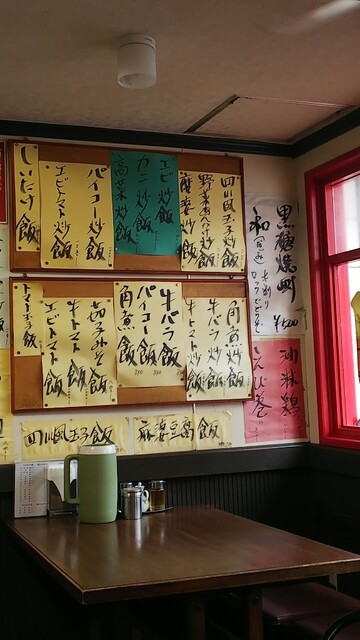 四川風玉子炒飯
野菜あんかけ炒飯
麻婆炒飯
エビ炒飯
カニ炒飯
高菜炒飯
パイコー炒飯
エビトマト炒飯
しいたけ飯
角煮炒飯
牛バラ炒飯
牛トマト炒飯
牛バラ飯
パイコー飯
角煮飯
エビトマト飯
牛トマト飯
トマト玉子飯
四川風玉子飯
麻婆豆腐飯
黒糖焼酎
和
ロック
¥500
油淋鶏
えび巻